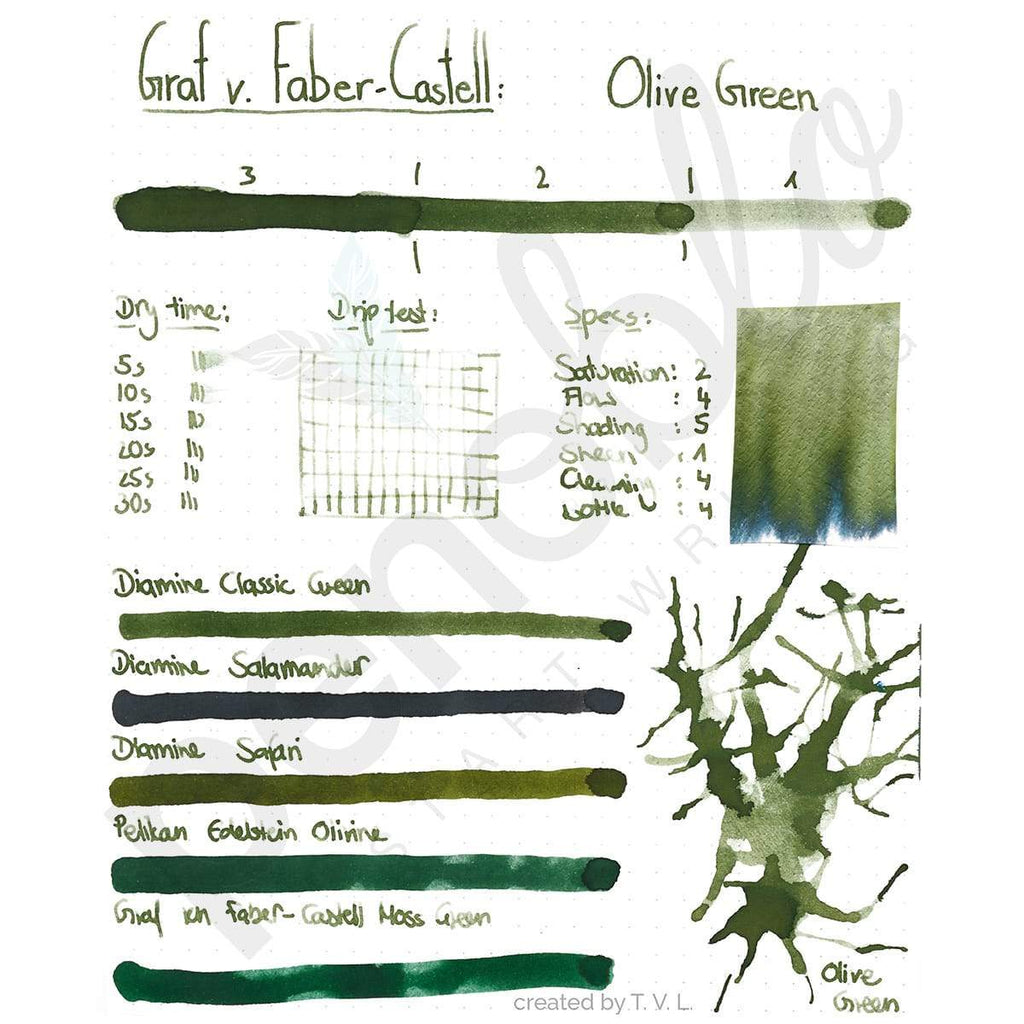 Graf v. Faber-Castell: Olive Green
3 | 2 | 1
| |
Dry time:
5s
10s
15s
20s
25s
30s
Drip test:
Specs:
Saturation: 2
Flow : 4
Shading : 5
Sheen : 1
Cleaning : 4
Bottle : 4
Diamine Classic Green
Diamine Salamander
Diamine Safari
Pelikan Edelstein Olivine
Graf von Faber-Castell Moss Green
Olive
Green
penoblo
START WRITING
created by T. V. L.